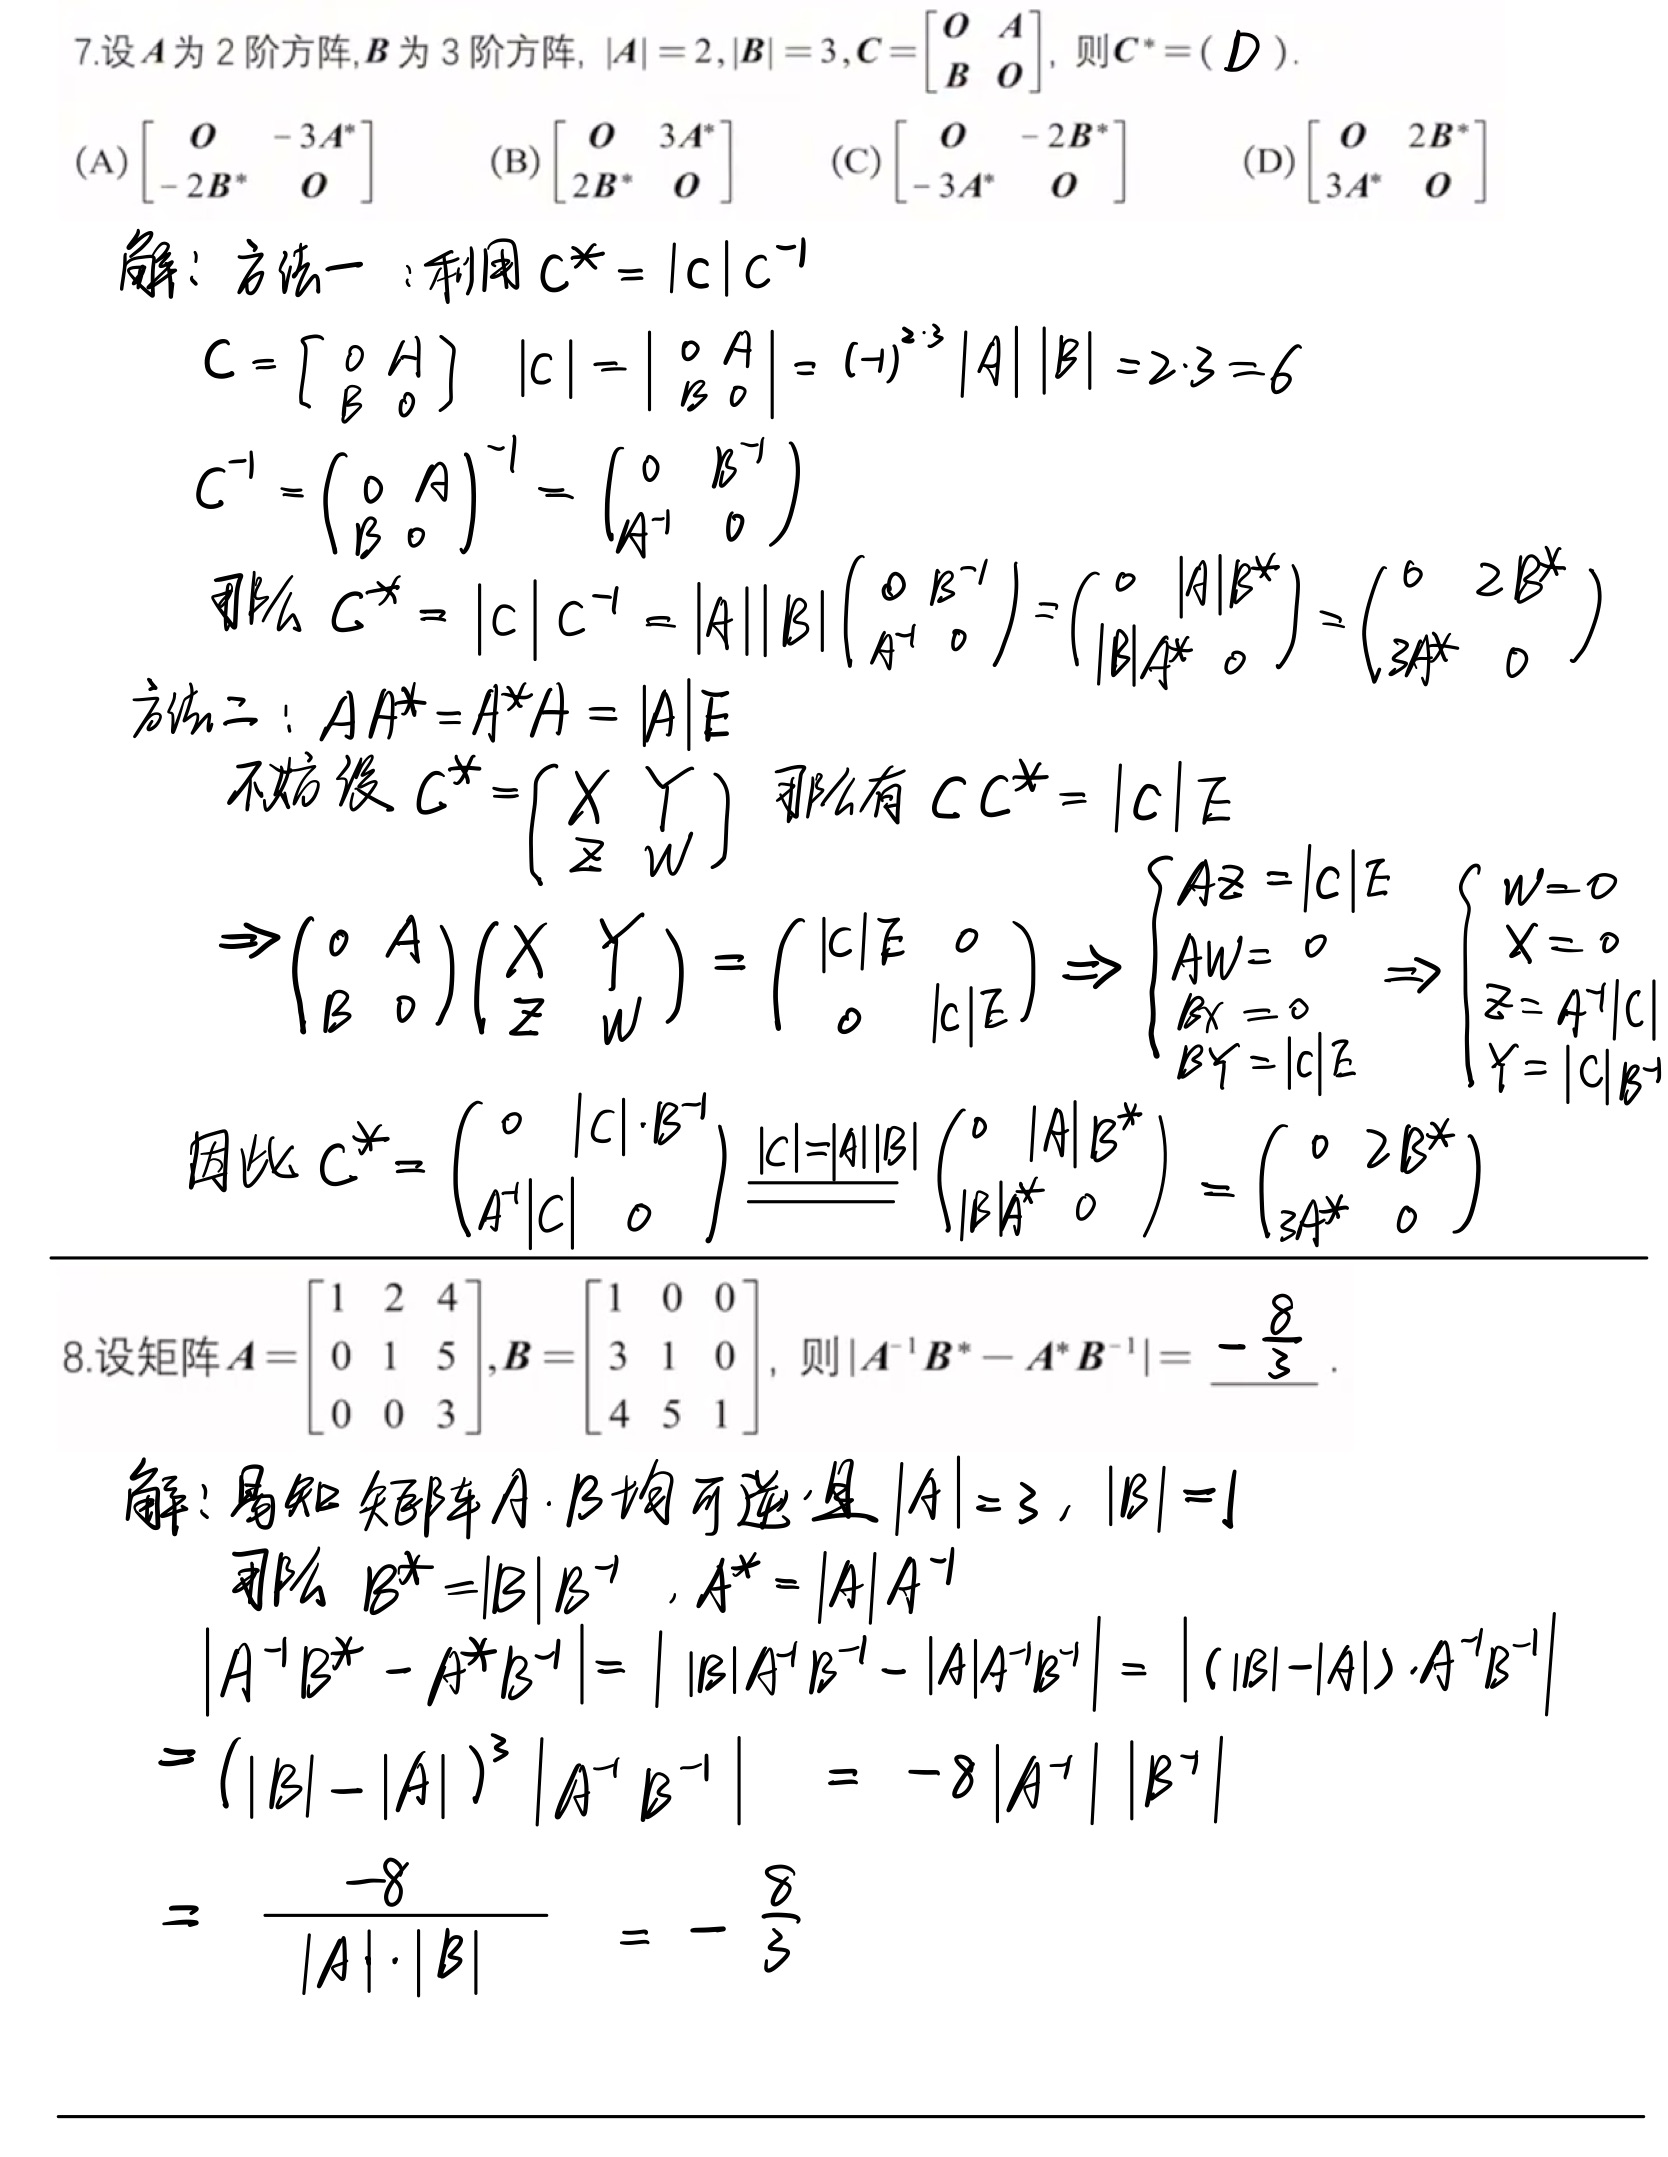 7.设 A 为 2 阶方阵,B 为 3 阶方阵, |A|=2,|B|=3,C=[O A; B O], 则C*=( D ).
(A)[O -3A*; -2B* O] (B)[O 3A*; 2B* O] (C)[O -2B*; -3A* O] (D)[O 2B*; 3A* O]
解: 方法一:利用 C* = |C|C⁻¹
C = [0 A; B 0] |C| = |0 A; B 0| = (-1)^{2·3}|A||B| = 2·3 = 6
C⁻¹ = (0 A; B 0)⁻¹ = (0 B⁻¹; A⁻¹ 0)
那么 C* = |C|C⁻¹ = |A||B|(0 B⁻¹; A⁻¹ 0) = (0 |A|B*; |B|A* 0) = (0 2B*; 3A* 0)
方法二: AA* = A*A = |A|E
不妨设 C* = (X Y; Z W) 那么有 CC* = |C|E
⇒ (0 A; B 0)(X Y; Z W) = (|C|E 0; 0 |C|E) ⇒ { AZ = |C|E; AW = 0; BX = 0; BY = |C|E ⇒ { W = 0; X = 0; Z = A⁻¹|C|; Y = |C|B⁻¹
因此 C* = (0 |C|·B⁻¹; A⁻¹|C| 0) |C|=|A||B| = (0 |A|B*; |B|A* 0) = (0 2B*; 3A* 0)
8.设矩阵 A=[1 2 4; 0 1 5; 0 0 3],B=[1 0 0; 3 1 0; 4 5 1], 则|A⁻¹B*-A*B⁻¹|= -8/3 .
解: 易知 矩阵 A·B 均可逆.且 |A| = 3, |B| = 1
那么 B* = |B|B⁻¹ , A* = |A|A⁻¹
|A⁻¹B* - A*B⁻¹| = ||B|A⁻¹B⁻¹ - |A|A⁻¹B⁻¹| = |(|B|-|A|)·A⁻¹B⁻¹|
= (|B|-|A|)³|A⁻¹B⁻¹| = -8|A⁻¹||B⁻¹|
= -8/(|A|·|B|) = -8/3